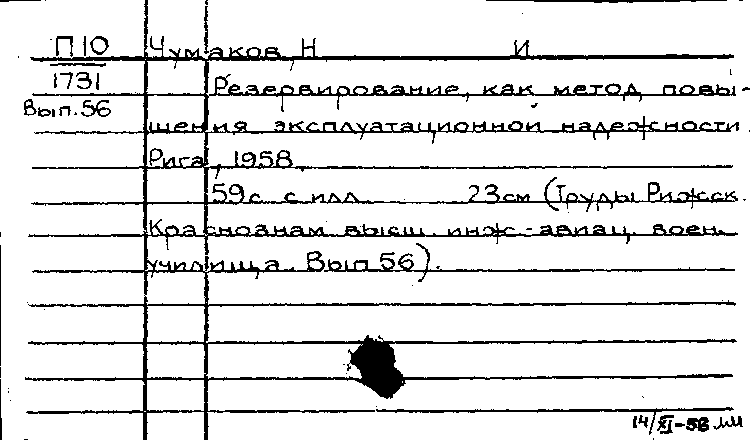 П10 Чумаков, Н И
1731 Резервирование, как метод повы-
Вып.56
шения эксплуатационной надежности.
Рига, 1958.
59с. с илл. 23см (Труды Рижск.
Краснознам. высш. инж.-авиац. воен.
училища. Вып 56).
14/XI-58